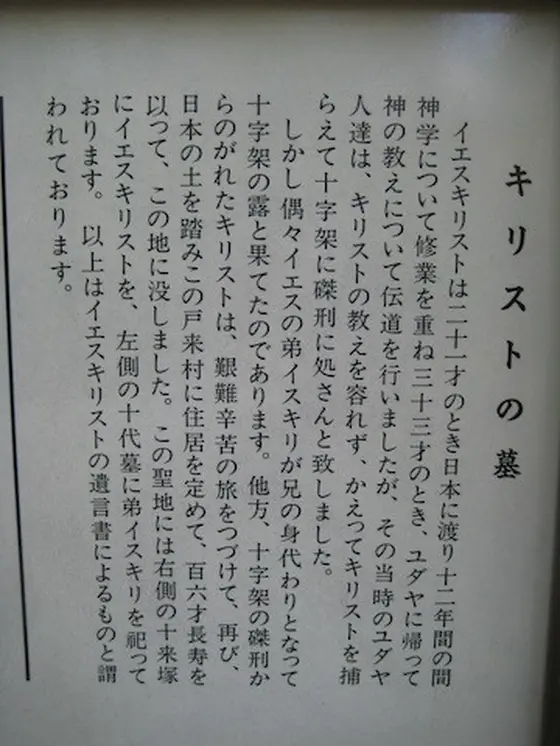 キリストの墓
イエスキリストは二十一才のとき日本に渡り十二年間の間
神学について修業を重ね三十三才のとき、ユダヤに帰って
神の教えについて伝道を行いましたが、その当時のユダヤ
人達は、キリストの教えを容れず、かえってキリストを捕
らえて十字架に磔刑に処さんと致しました。
しかし偶々イエスの弟イスキリが兄の身代わりとなって
十字架の露と果てたのであります。他方、十字架の磔刑か
らのがれたキリストは、艱難辛苦の旅をつづけて、再び、
日本の土を踏みこの戸来村に住居を定めて、百六才長寿を
以って、この地に没しました。この聖地には右側の十来塚
にイエスキリストを、左側の十代墓に弟イスキリを祀って
おります。以上はイエスキリストの遺言書によるものと謂
われております。